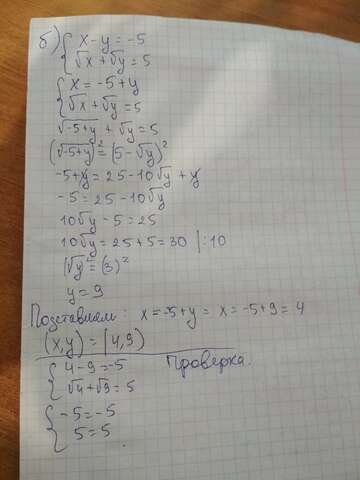 б) { x-y=-5
√x+√y=5
{ x=-5+y
√x+√y=5
√-5+y + √y=5
(√-5+y)²=(5-√y)²
-5+y=25-10√y+y
-5=25-10√y
10√y-5=25
10√y=25+5=30 |:10
(√y)²=(3)²
y=9
Подставляем: x=-5+y= x=-5+9=4
(x,y)=(4,9)
{ 4-9=-5 Проверка.
√4+√9=5
{ -5=-5
5=5